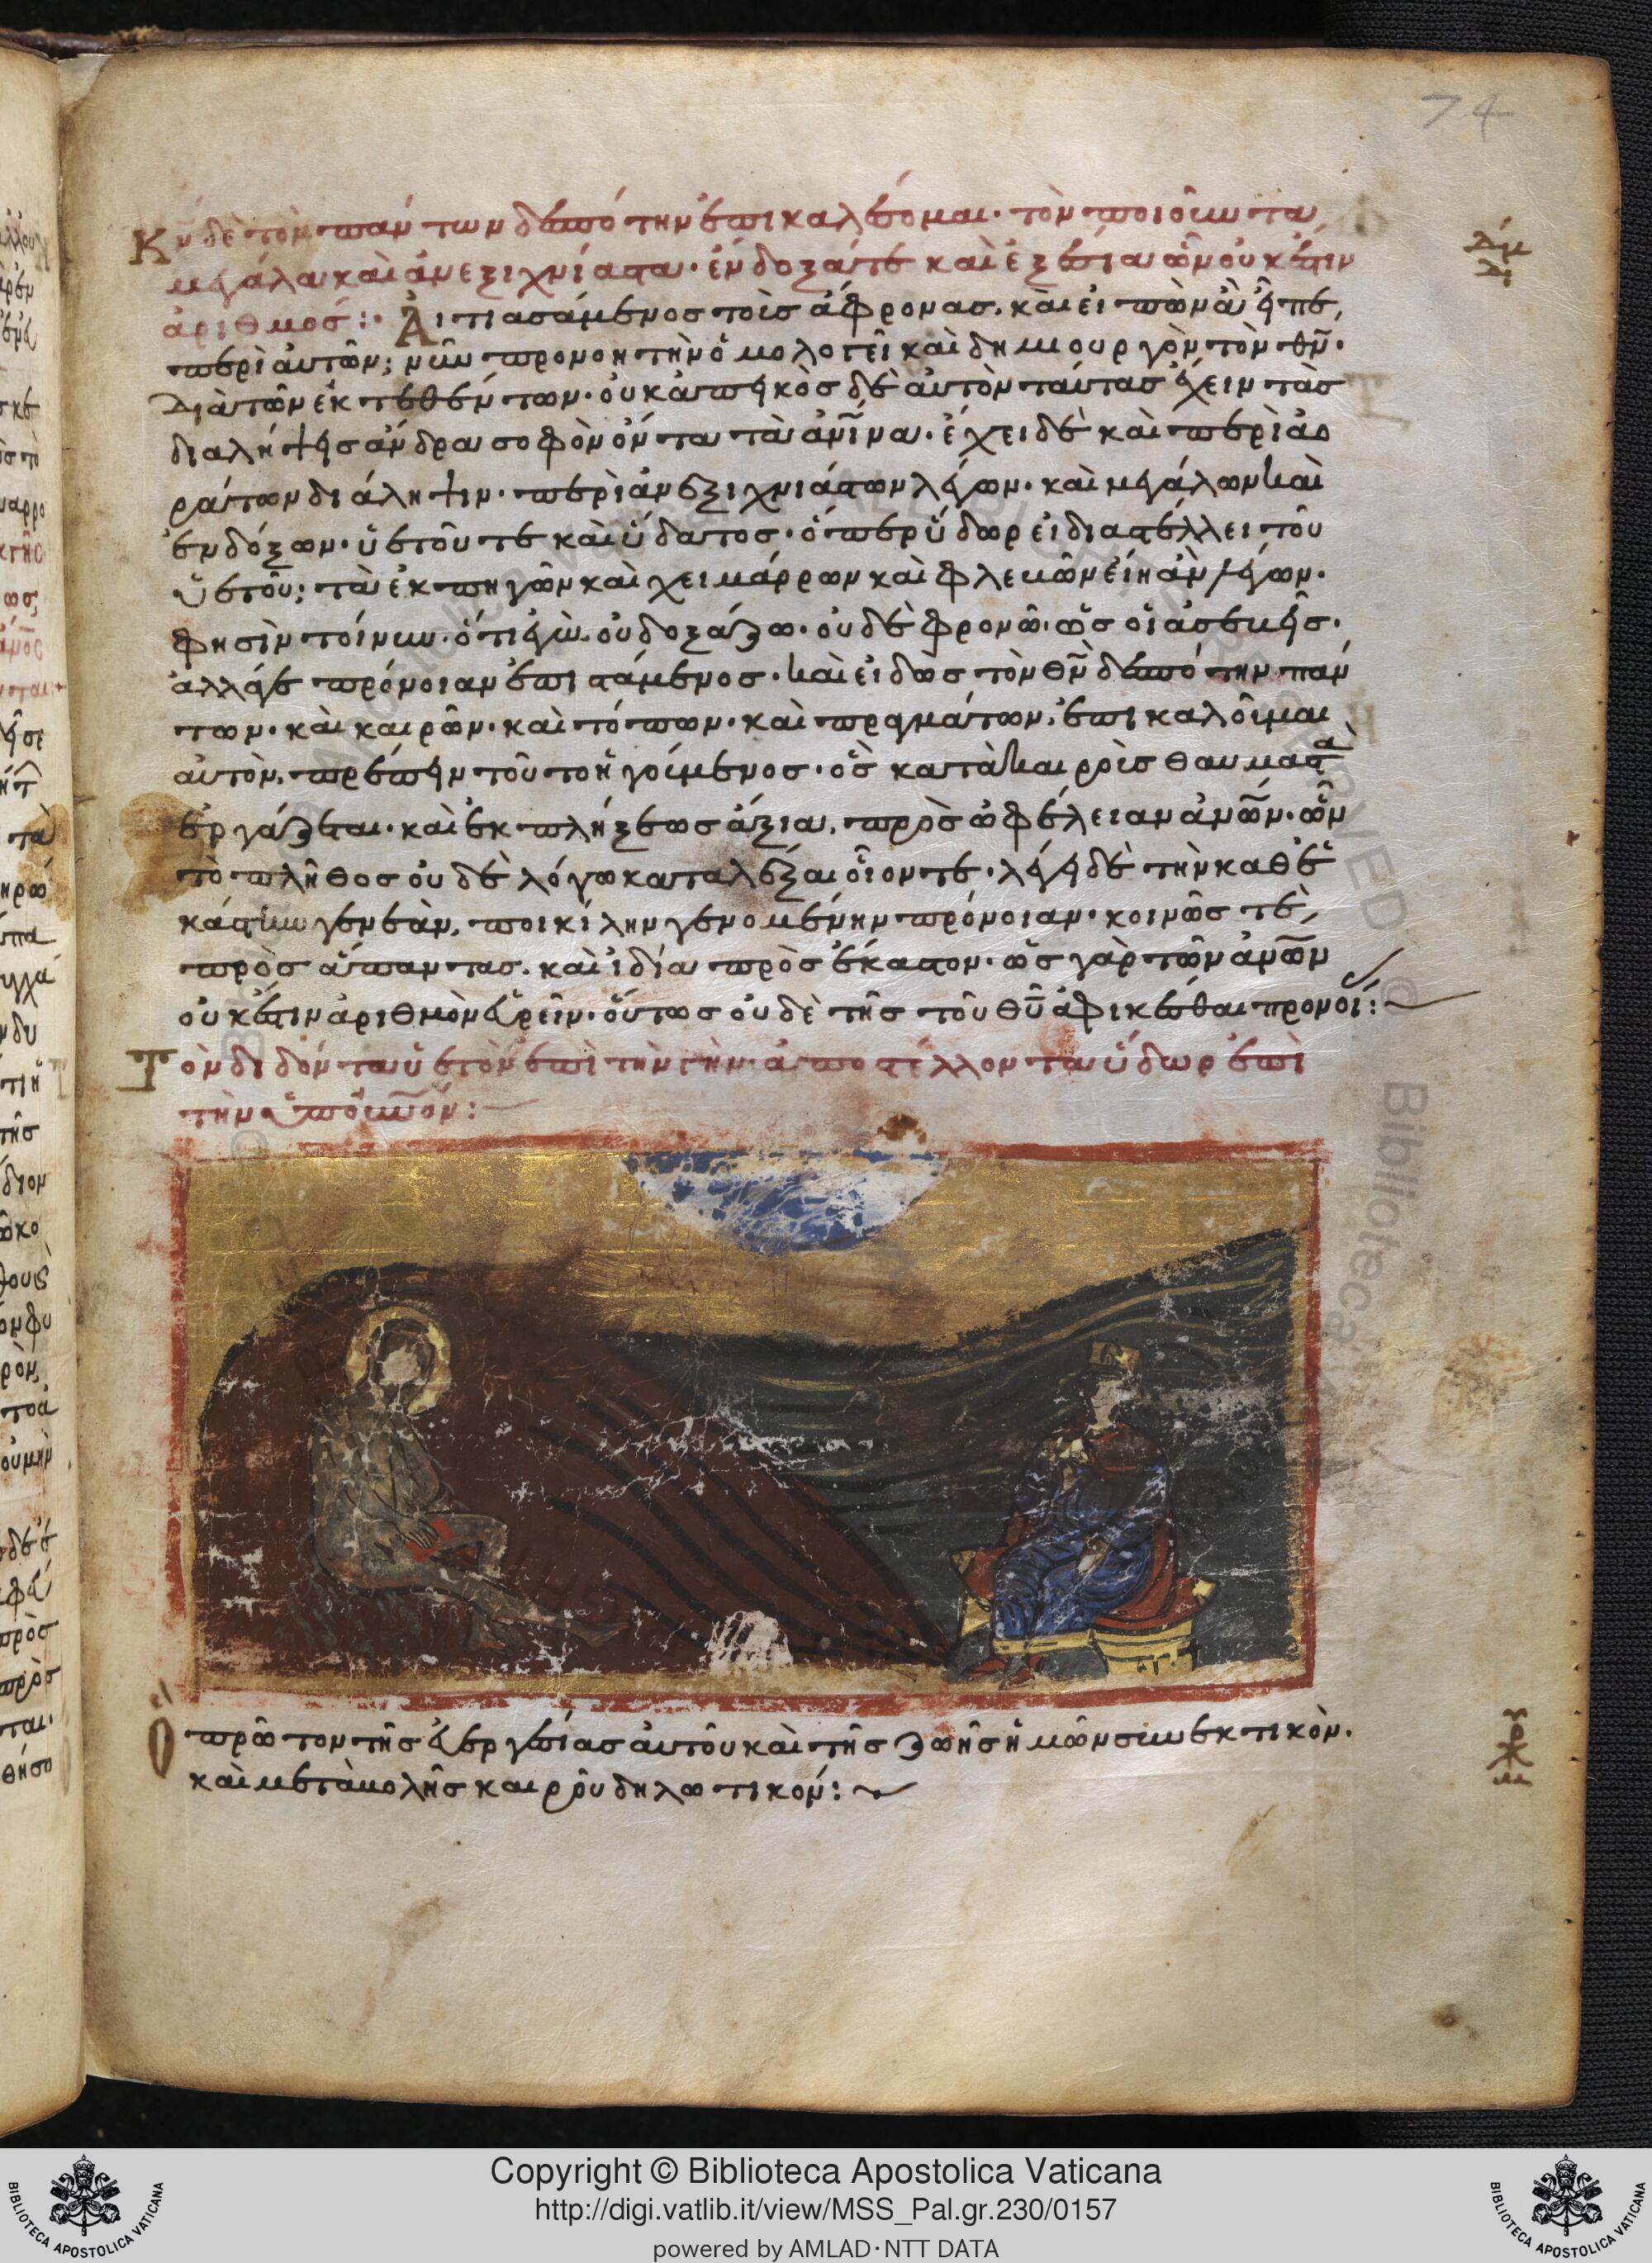 74
Κν̅ δὲ τὸν πάντων δεσπότην ἐπικαλέσομαι· τὸν ποιοῦντα
μεγάλα καὶ ἀνεξιχνίαστα· ἔνδοξά τε καὶ ἐξαίσια ὧν οὐκ ἔστιν
ἀριθμός:· Αἰτιασάμενος τοὺς ἄφρονας. καὶ εἰπὼν ἃ εἶπε,
περὶ αὐτῶν; νῦν προνοητὴν ὁμολογεῖ καὶ δημιουργὸν τὸν θν̅·
Διὰ τῶν ἐκτεθέντων· οὐκ ἀπεικὸς δὲ αὐτὸν ταύτας ἔχειν τὰς
διαλήψεις ἄνδρα σοφὸν ὄντα τὰ ἀνι̅να· ἔχει δὲ καὶ περὶ ἀρ
ρήτων διάληψιν· περὶ ἀνεξιχνιάστων λέγων· καὶ μεγάλων καὶ
ἐνδόξων· ὑετοῦ τε καὶ ὕδατος· ὅπερ ὕδωρ εἰ διαστέλλει τοῦ
ὑετοῦ; τὰ ἐκ πηγῶν καὶ χειμάρρων καὶ φλεβῶν εἴη ἂν λέγων·
φησὶν τοίνυν· ὅτι ἐγὼ οὐ δοξάζω· οὐδὲ φρονῶ· ὡς οἱ ἀσεβεῖς·
ἀλλά γε πρόνοιαν ἐπιστάμενος· καὶ εἰδὼς τὸν θν̅ δεσπότην πάν
των· καὶ καιρῶν· καὶ τόπων· καὶ πραγμάτων, ἐπικαλοῦμαι
αὐτὸν, πρέπειν τοῦτο ἡγούμενος· ὃς κατὰ καιροὺς θαυμαστὰ
ἐργάζεται· καὶ ἐκπλήξεως ἄξια, πρὸς ὠφέλειαν ἀνω̅ν· ὧν
τὸ πλῆθος οὐδὲ λόγω καταλέξαι οἷόν τε· λέγει δὲ τὴν καθ' ἑ
κάστην γενεὰν, ποικίλην γενομένην πρόνοιαν· κοινῶς τὲ,
πρὸς ἅπαντας. καὶ ἰδία πρὸς ἕκαστον· ὡς γὰρ τῶν ἀνω̅ν
οὐκ ἔστιν ἀριθμὸν εὑρεῖν· οὕτως οὐδὲ τῆς τοῦ θυ̅ ἀφικέσθαι προνοί:
Τὸν διδόντα ὑετὸν ἐπὶ τὴν γῆν· ἀποστέλλοντα ὕδωρ ἐπὶ
τὴν ὑπ' οὐνο̅ν:
Ὃ πρῶτον τῆς εὐεργεσίας αὐτοῦ καὶ τῆς ζωῆς ἡμῶν συνεκτικὸν·
καὶ μεταβολῆς καιροῦ δηλωτικόν:
Copyright © Biblioteca Apostolica Vaticana
http://digi.vatlib.it/view/MSS_Pal.gr.230/0157
powered by AMLAD·NTT DATA
BIBLIOTECA APOSTOLICA VATICANA
BIBLIOTECA APOSTOLICA VATICANA